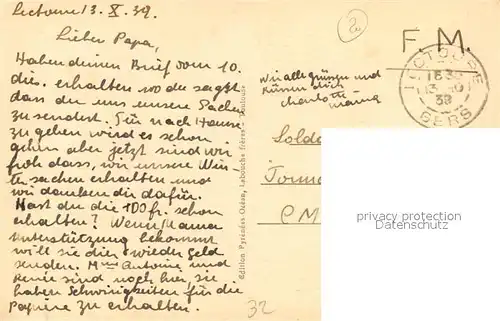 Lectoure 13. X. 39.
Lieber Papa,
Haben deinen Brief vom 10.
dis. erhalten wo du sagst
dass du uns unsere Sachen
zu sendest. Für nach Hause
zu gehen wird es schon
gehen aber jetzt sind wir
froh dass, wir unsere Win-
ter sachen erhalten und
wir danken dir dafür.
Hast du die 100 fr. schon
erhalten? Wenn Mama
Unterstützung bekommt
will sie dir wieder geld
senden. Mme Antoine und
René sind noch hier sie
haben Schwirigkeiten für die
Papire zu erhalten.
wir alle grüssen und
küssen dich
Charlotte
mama
Edition Pyrénées-Océan, Labouche frères - Toulouse
F. M.
LECTOURE
1630
13 - 10
39
GERS
Solda
CM
privacy protection
Datenschutz
32